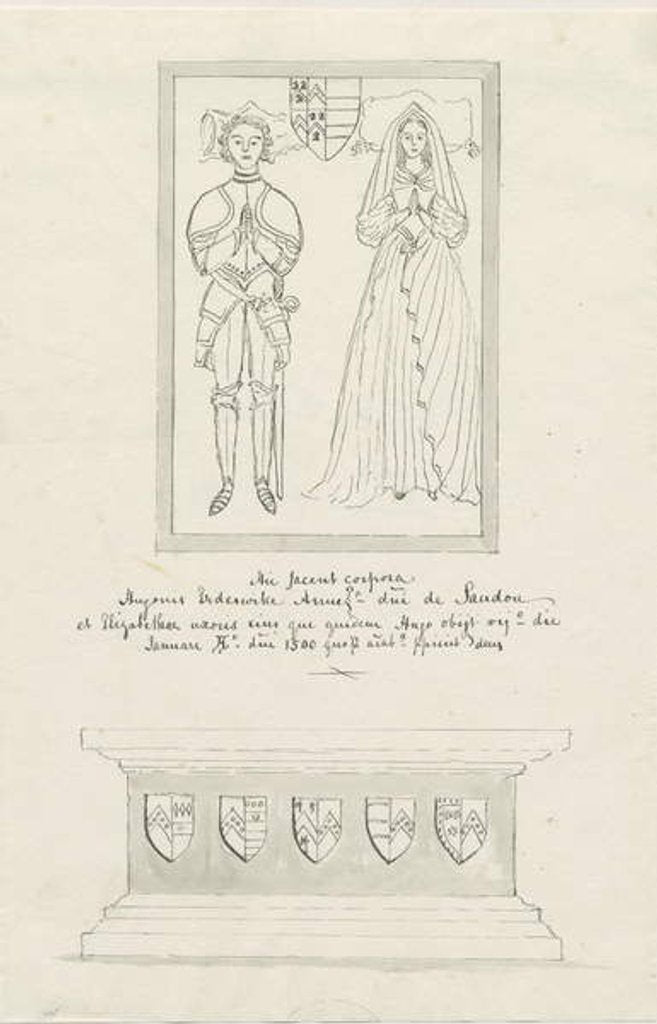 Hic Jacent corpora
Hugonis Erdeswike Armeg^o dñi de Sandon
et Elizabethae uxoris eius que quidem Hugo obiyt vij^o die
Januarii A^o dñi 1500 quor aiab^s ppiciet deus